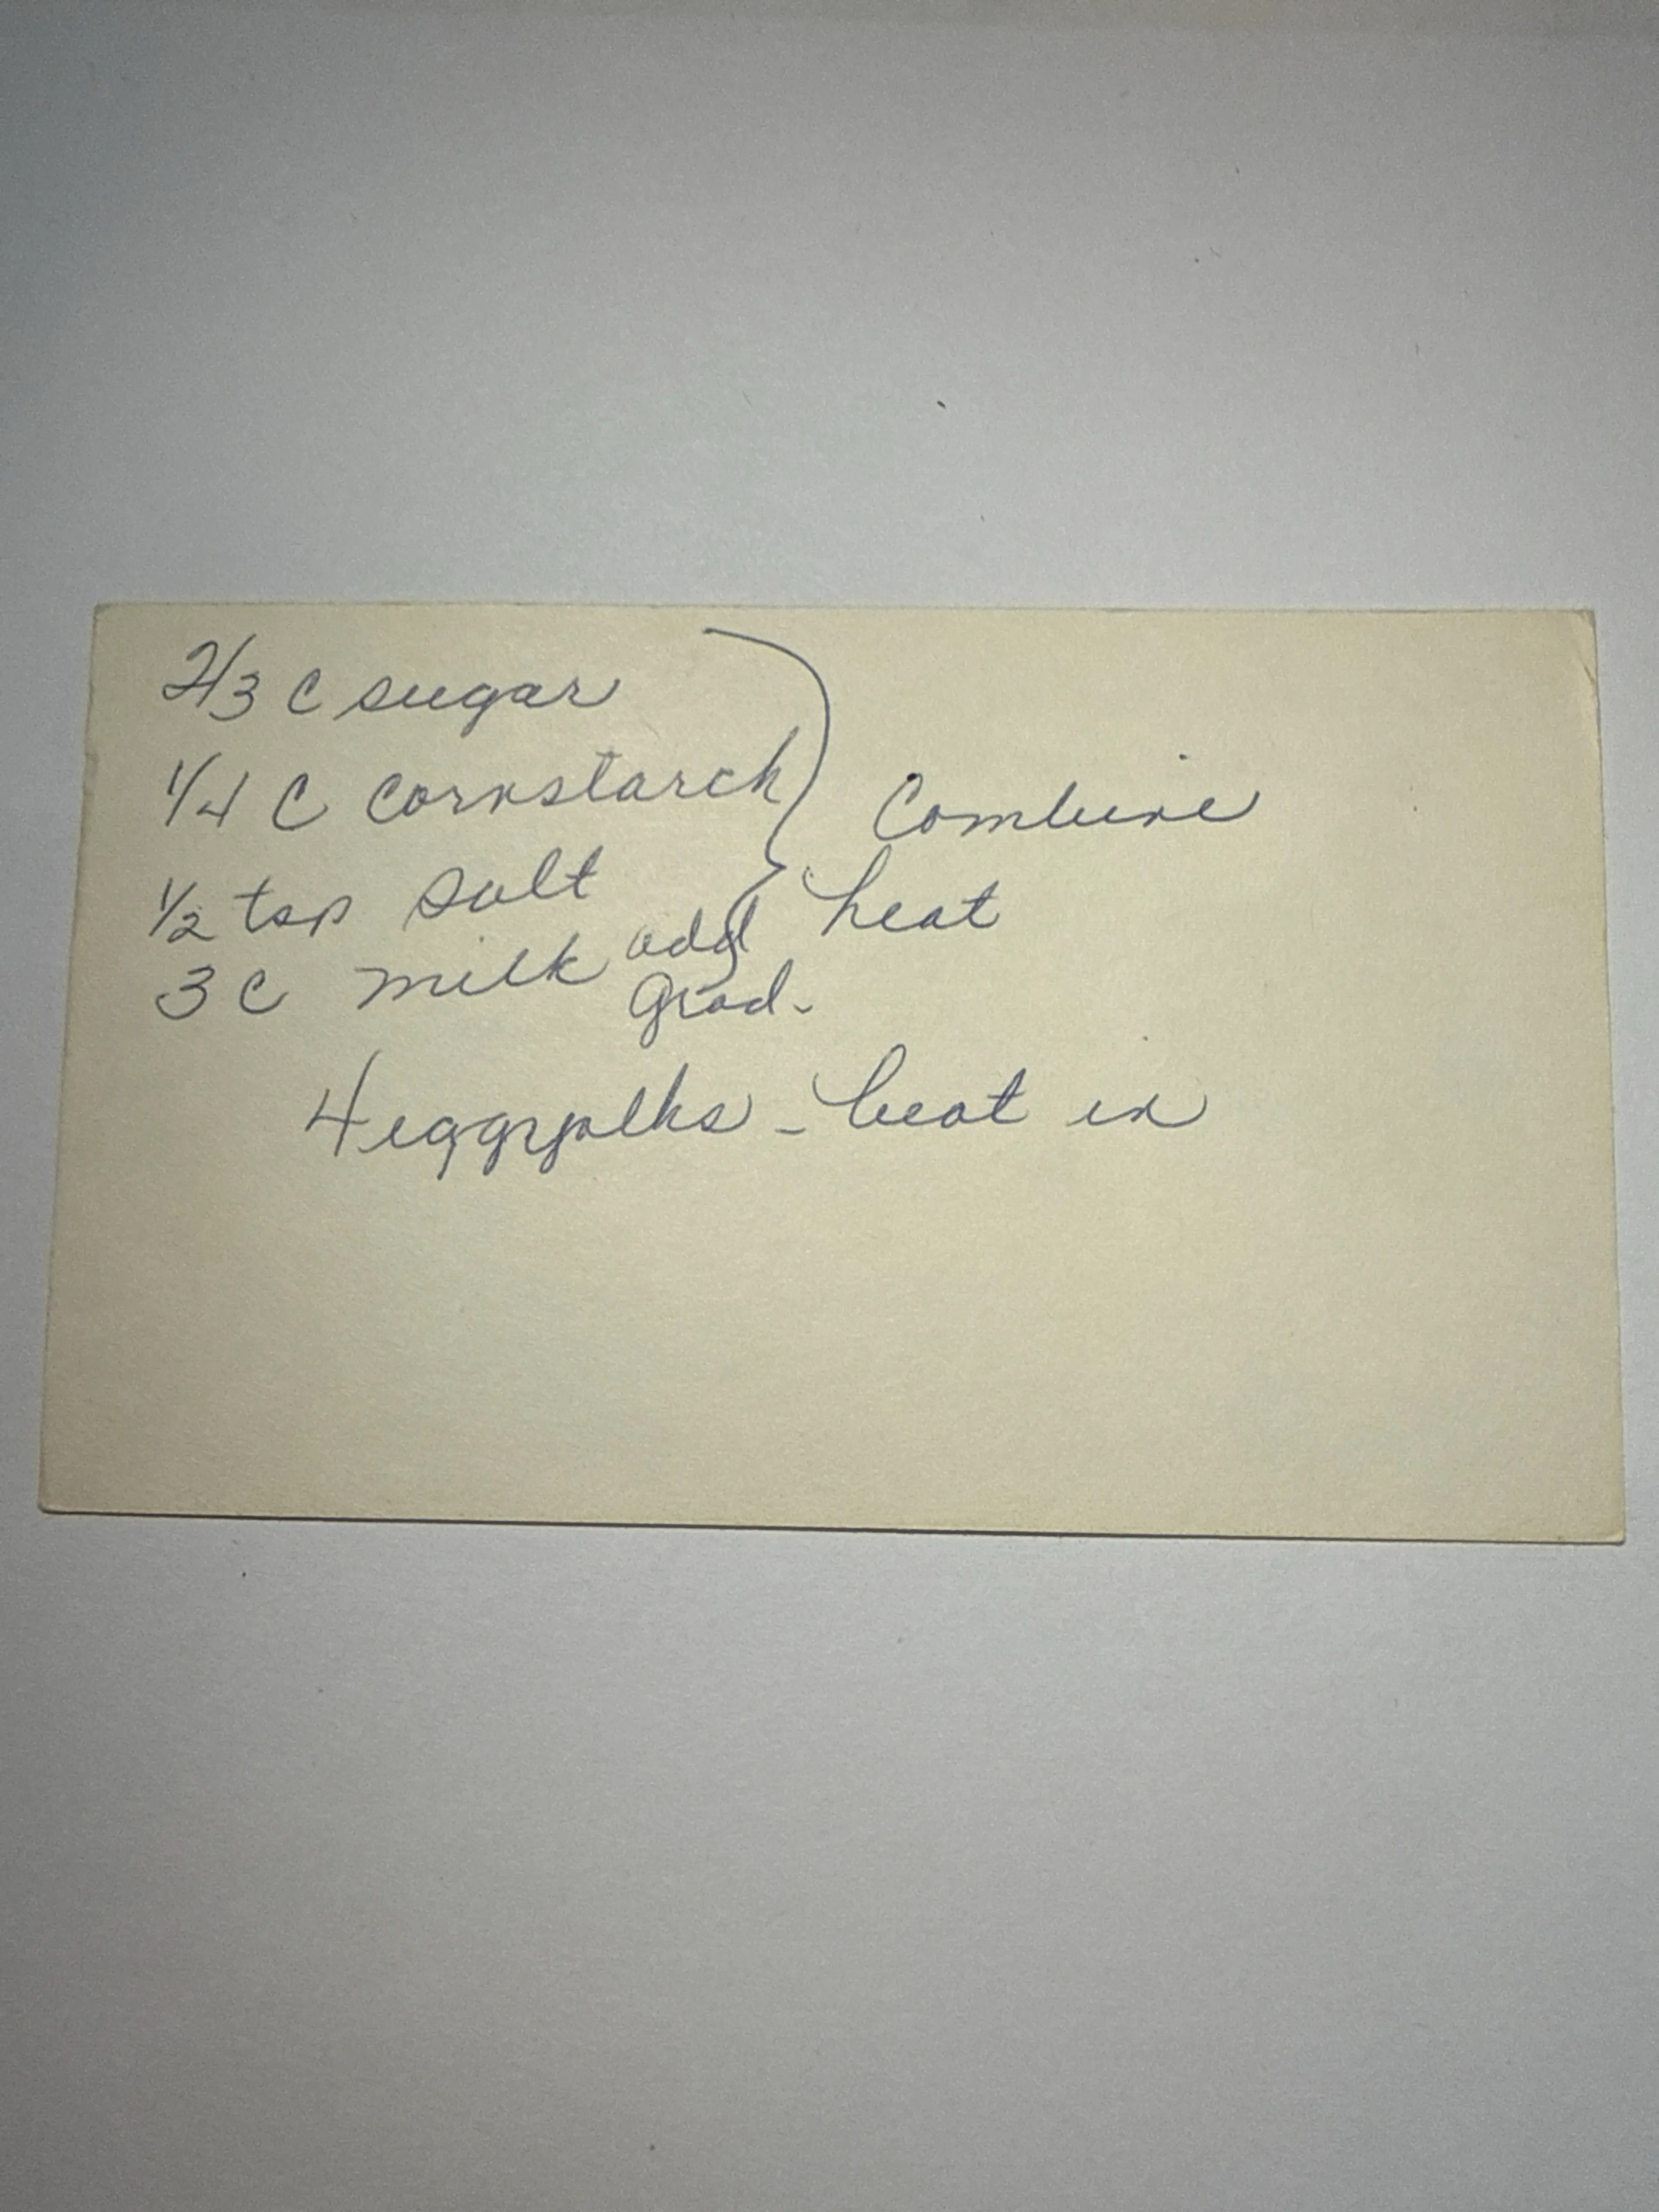 2/3 C sugar
1/4 C cornstarch
Combine
1/2 tsp salt
heat
3 C milk add
grad.
4 eggyolks - beat in